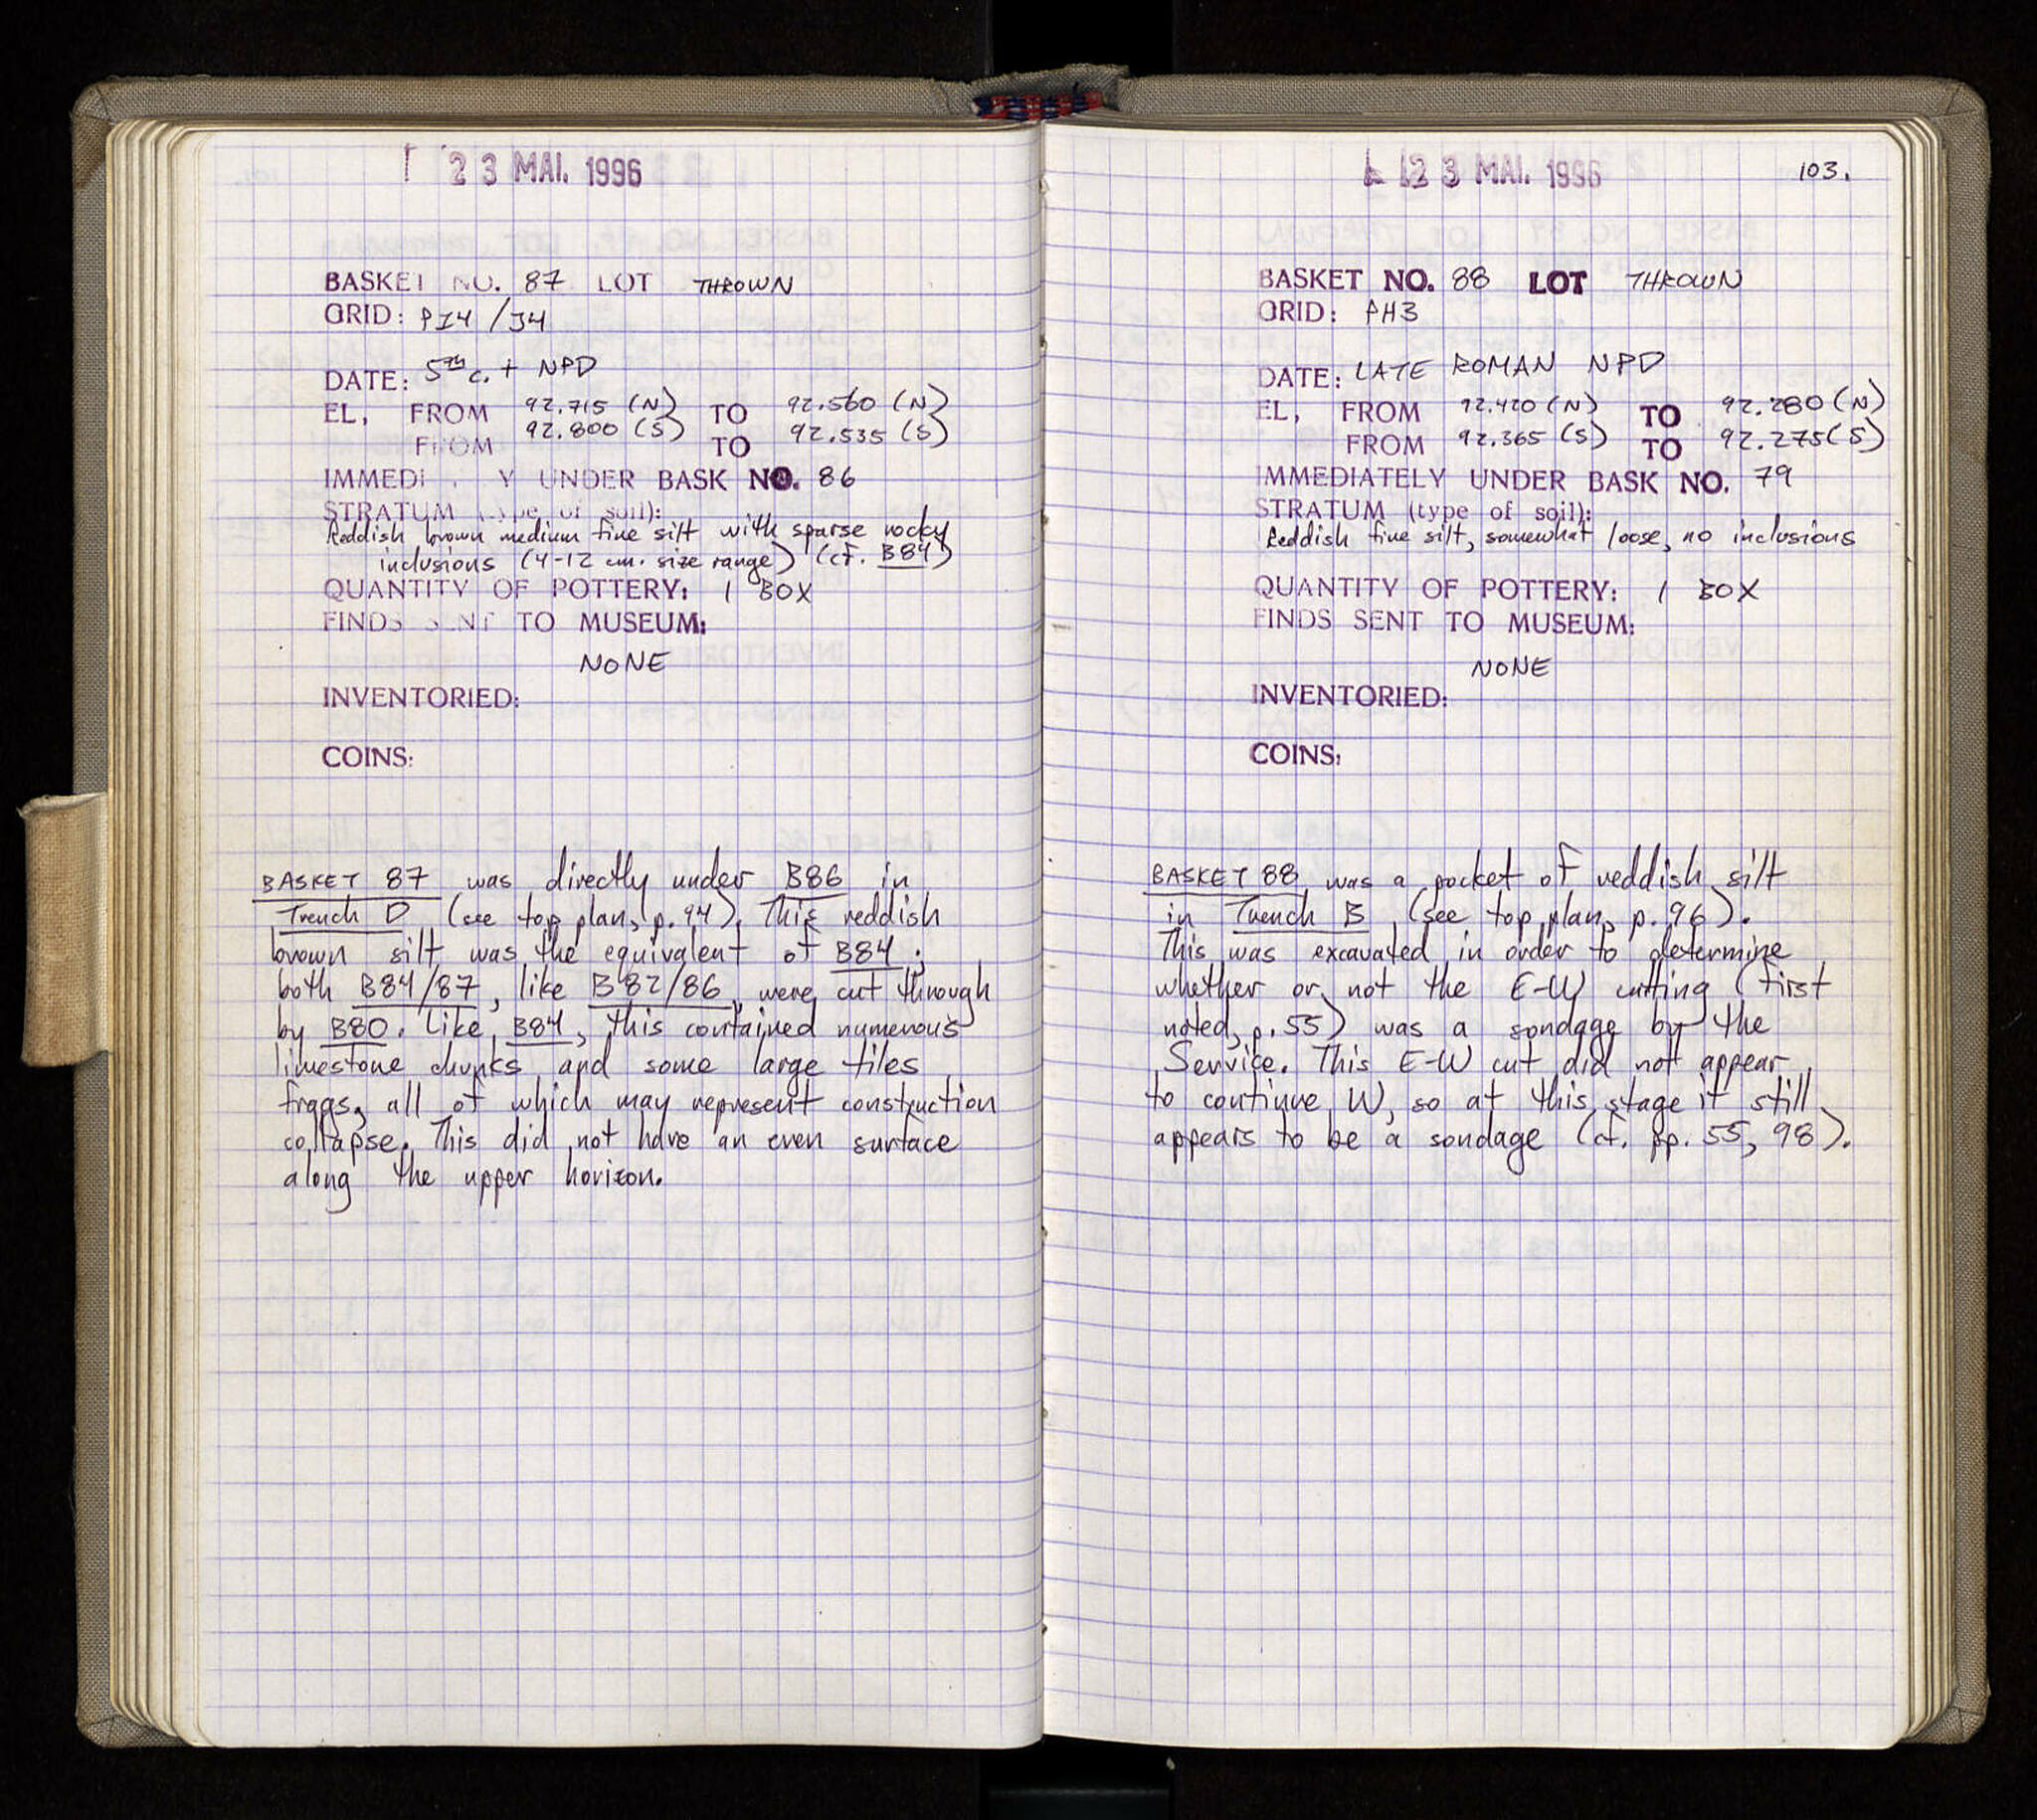 23 MAI. 1996
BASKET NO. 87 LOT THROWN
GRID: PI4/J4
DATE: 5th c. + NPD
EL, FROM 92.715 (N) TO 92.560 (N)
FROM 92.800 (S) TO 92.535 (S)
IMMEDI Y UNDER BASK NO. 86
STRATUM (type of soil):
Reddish brown medium fine silt with sparse rocky
inclusions (4-12 cm. size range) (cf. B84)
QUANTITY OF POTTERY: 1 BOX
FINDS SENT TO MUSEUM:
NONE
INVENTORIED:
COINS:
BASKET 87 was directly under B86 in
Trench D (see top plan, p. 94). This reddish
brown silt was the equivalent of B84;
both B84/87, like B82/86, were cut through
by B80. Like B84, this contained numerous
limestone chunks and some large tiles
frags, all of which may represent construction
collapse. This did not have an even surface
along the upper horizon.
23 MAI. 1996
103.
BASKET NO. 88 LOT THROWN
GRID: PH3
DATE: LATE ROMAN NPD
EL, FROM 92.420 (N) TO 92.280 (N)
FROM 92.365 (S) TO 92.275 (S)
IMMEDIATELY UNDER BASK NO. 79
STRATUM (type of soil):
Reddish fine silt, somewhat loose, no inclusions
QUANTITY OF POTTERY: 1 BOX
FINDS SENT TO MUSEUM:
NONE
INVENTORIED:
COINS:
BASKET 88 was a pocket of reddish silt
in Trench B (see top plan, p. 96).
This was excavated in order to determine
whether or not the E-W cutting (first
noted, p. 55) was a sondage by the
Service. This E-W cut did not appear
to continue W, so at this stage it still
appears to be a sondage (cf. pp. 55, 98).